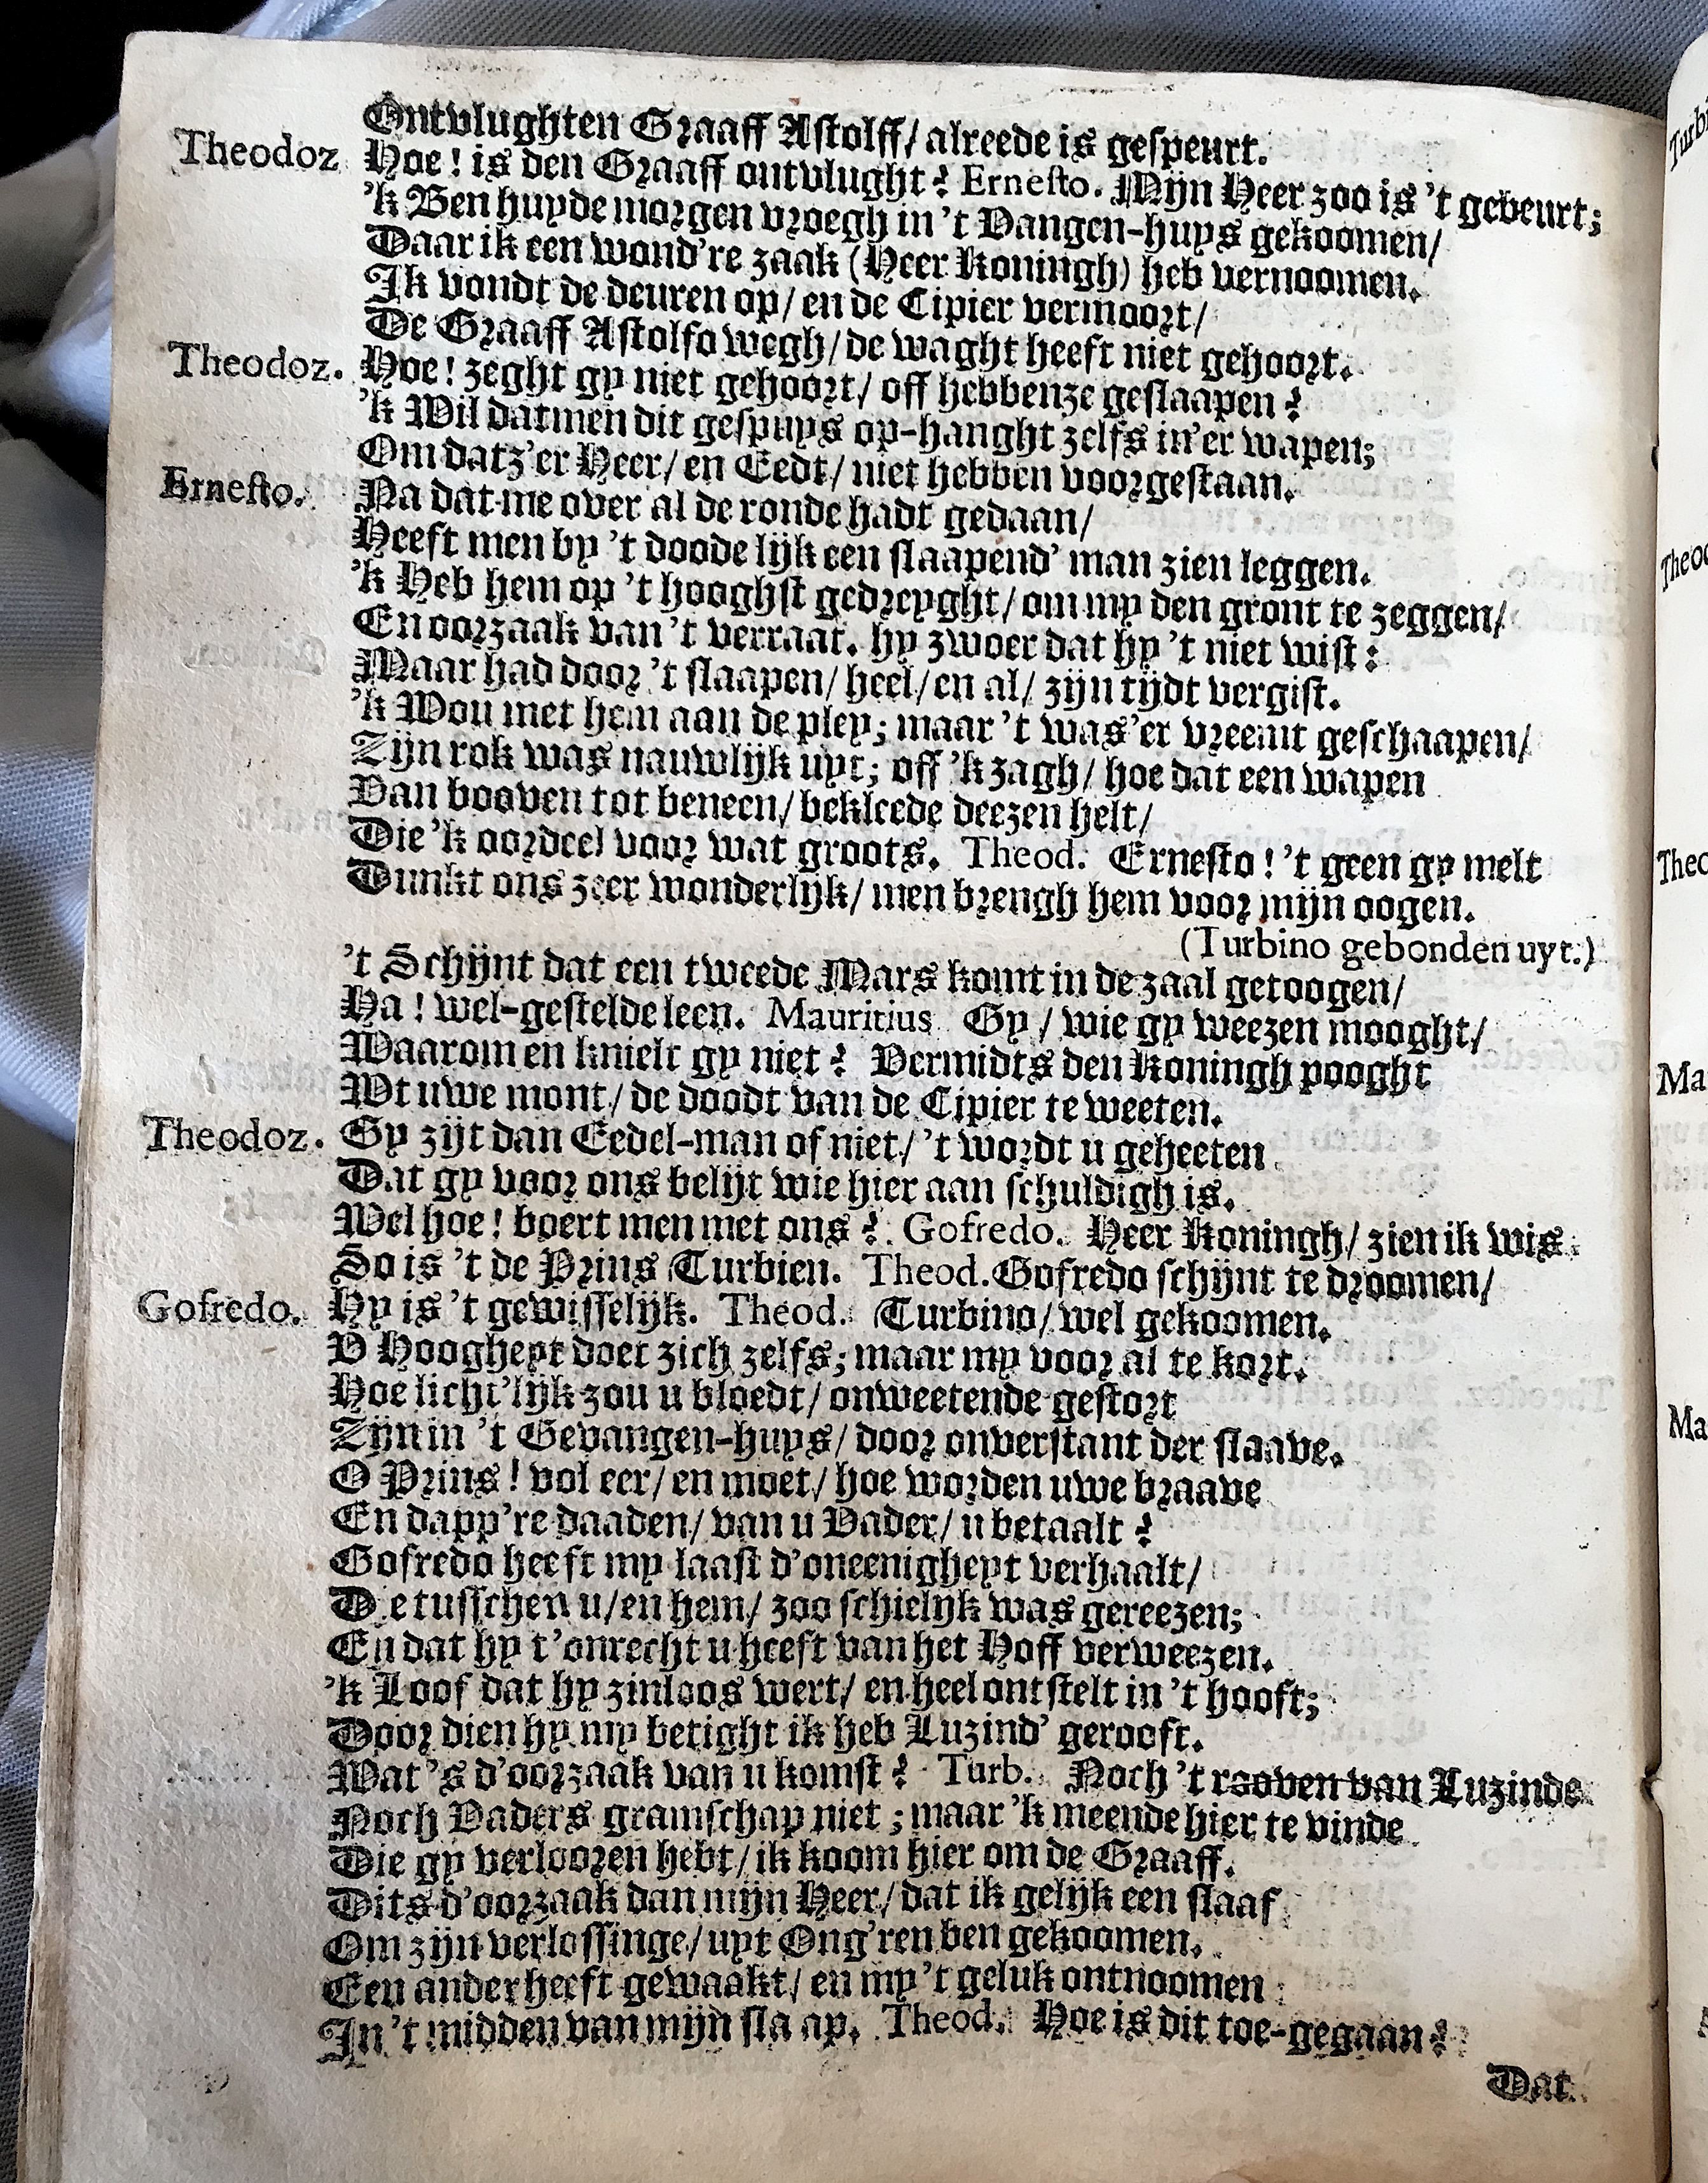 Ontvlughten Graaff Astolff/ alreede is gespeurt.
Theodoz Hoe! is den Graaff ontvlught? Ernesto. Mijn Heer zoo is 't gebeurt;
'k Ben huyde morgen vroegh in 't Vangen-huys gekoomen/
Daar ik een wond're zaak (Heer Koningh) heb vernoomen.
Ik vondt de deuren op/ en de Cipier vermoort/
De Graaff Astolfo wegh/ de waght heeft niet gehoort.
Theodoz. Hoe! zeght gy niet gehoort/ off hebbenze geslaapen?
'k Wil datmen dit gespuys op-hanght zelfs in'er wapen;
Om datz'er Heer/ en Eedt/ niet hebben voorgestaan.
Ernesto. Na dat me over al de ronde hadt gedaan/
Heeft men by 't doode lijk een slaapend' man zien leggen.
'k Heb hem op 't hooghst gedreyght/ om my den gront te zeggen/
En oorzaak van 't verraat. hy zwoer dat hy 't niet wist:
Maar had door 't slaapen/ heel/ en al/ zijn tijdt vergist.
'k Wou met hem aan de pley; maar 't was'er vreemt geschaapen/
Zijn rok was nauwlijk uyt; off 'k zagh/ hoe dat een wapen
Van booven tot beneen/ bekleede deezen helt/
Die 'k oordeel voor wat groots. Theod. Ernesto! 't geen gy melt
Dunkt ons zeer wonderlijk/ men brengh hem voor mijn oogen.
(Turbino gebonden uyt.)
't Schijnt dat een tweede Mars komt in de zaal getoogen/
Ha! wel-gestelde leen. Mauritius Gy/ wie gy weezen mooght/
Waarom en knielt gy niet? Vermidts den Koningh pooght
Wt uwe mont/ de doodt van de Cipier te weeten.
Theodoz. Gy zijt dan Eedel-man of niet/ 't wordt u geheeten
Dat gy voor ons belijt wie hier aan schuldigh is.
Wel hoe! boert men met ons? Gofredo. Heer Koningh/ zien ik wis.
So is 't de Prins Turbien. Theod. Gofredo schijnt te droomen/
Gofredo. Hy is 't gewisselijk. Theod. Turbino/ wel gekoomen.
V Hoogheyt doet zich zelfs; maar my voor al te kort.
Hoe licht'lijk zou u bloedt/ onweetende gestort
Zijn in 't Gevangen-huys/ door onverstant der slaave.
O Prins! vol eer/ en moet/ hoe worden uwe braave
En dapp're daaden/ van u Vader/ u betaalt?
Gofredo heeft my laast d'oneenigheyt verhaalt/
Die tusschen u/ en hem/ zoo schielijk was gereezen;
En dat hy t'onrecht u heeft van het Hoff verweezen.
'k Loof dat hy zinloos wert/ en heel ontstelt in 't hooft;
Door dien hy my betight ik heb Luzind' gerooft.
Wat 's d'oorzaak van u komst? Turb. Noch 't rooven van Luzinde
Noch Vaders gramschap niet; maar 'k meende hier te vinde
Die gy verloozen hebt/ ik koom hier om de Graaff.
Dits d'oorzaak dan mijn Heer/ dat ik gelijk een slaaf
Om zijn verlossinge/ uyt Ong'ren ben gekoomen.
Een ander heeft gewaakt/ en my 't geluk ontnoomen
In 't midden van mijn sla ap. Theod. Hoe is dit toe-gegaan?
Dat